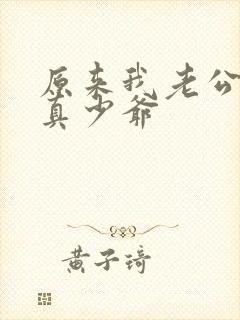 原来我老公
真少爷
黄子琦